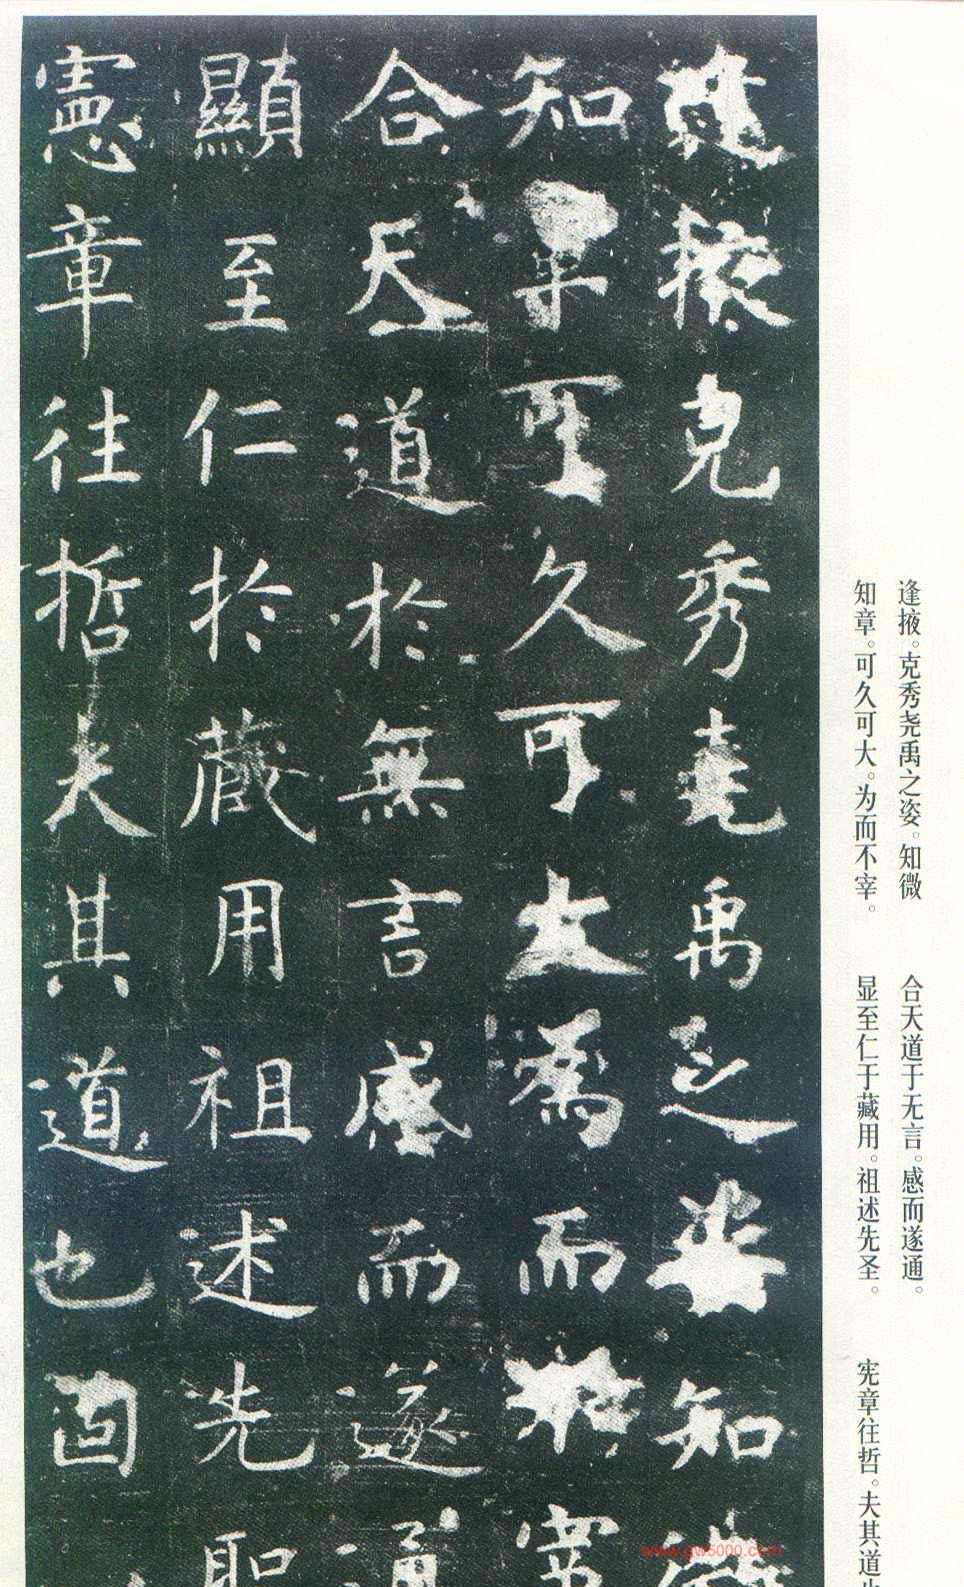 逢掖克秀堯禹之姿知微
知章可久可大為而不宰
合天道於無言感而遂通
顯至仁於藏用祖述先聖
憲章往哲夫其道也固
逢掖。克秀尧禹之姿。知微
知章。可久可大。为而不宰。
合天道于无言。感而遂通。
显至仁于藏用。祖述先圣。
宪章往哲。夫其道也
www.gw5000.com